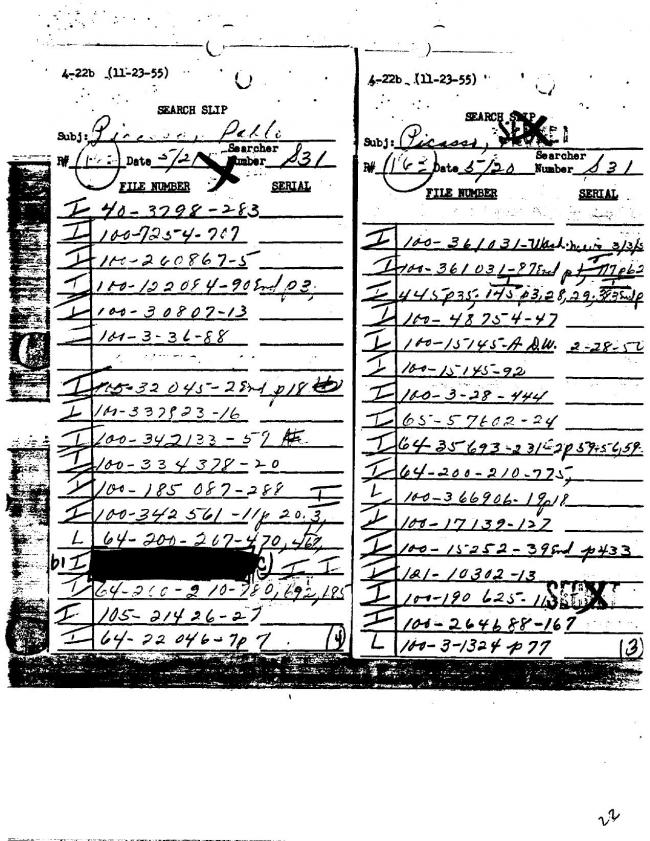 4-22b (11-23-55)
SEARCH SLIP
Subj: Picasso, Pablo
R# 162 Date 5/2 Searcher Number S31
FILE NUMBER SERIAL
I 40-3798-283
I 100-7254-707
I 100-260867-5
I 100-122084-90 end p3,
I 100-30807-13
100-3-36-88
I 32045-2 end p18
L 100-337923-16
I 100-342133-57
I 100-334378-20
I 100-185087-288 I
I 100-342561-11p 20.3,
L 64-200-207-470, 467,
b1 I (C) I I
I 64-200-210-780, 692, 185
I 105-21426-27
I 64-22046-7p7 (4)
4-22b (11-23-55)
SEARCH SLIP
SECRET
Subj: Picasso,
R# 162 Date 5/20 Searcher Number S31
FILE NUMBER SERIAL
I 100-361031-Wash 3/3/5
I 100-361031-87 end p1, 117p62
I 445p35, 145p3,28,29,383 end p
I 100-48754-47
I 100-15145-A D.W. 2-28-50
I 100-15145-92
I 100-3-28-444
I 65-57602-24
I 64-35693-231-2p59+56,59
I 64-200-210-775,
L 100-366906-19p18
I 100-17139-127
I 100-15252-39 end p433
I 121-10302-13
I 100-190625-11
SECRET
I 100-264688-167
L 100-3-1324 p77 (3)
22